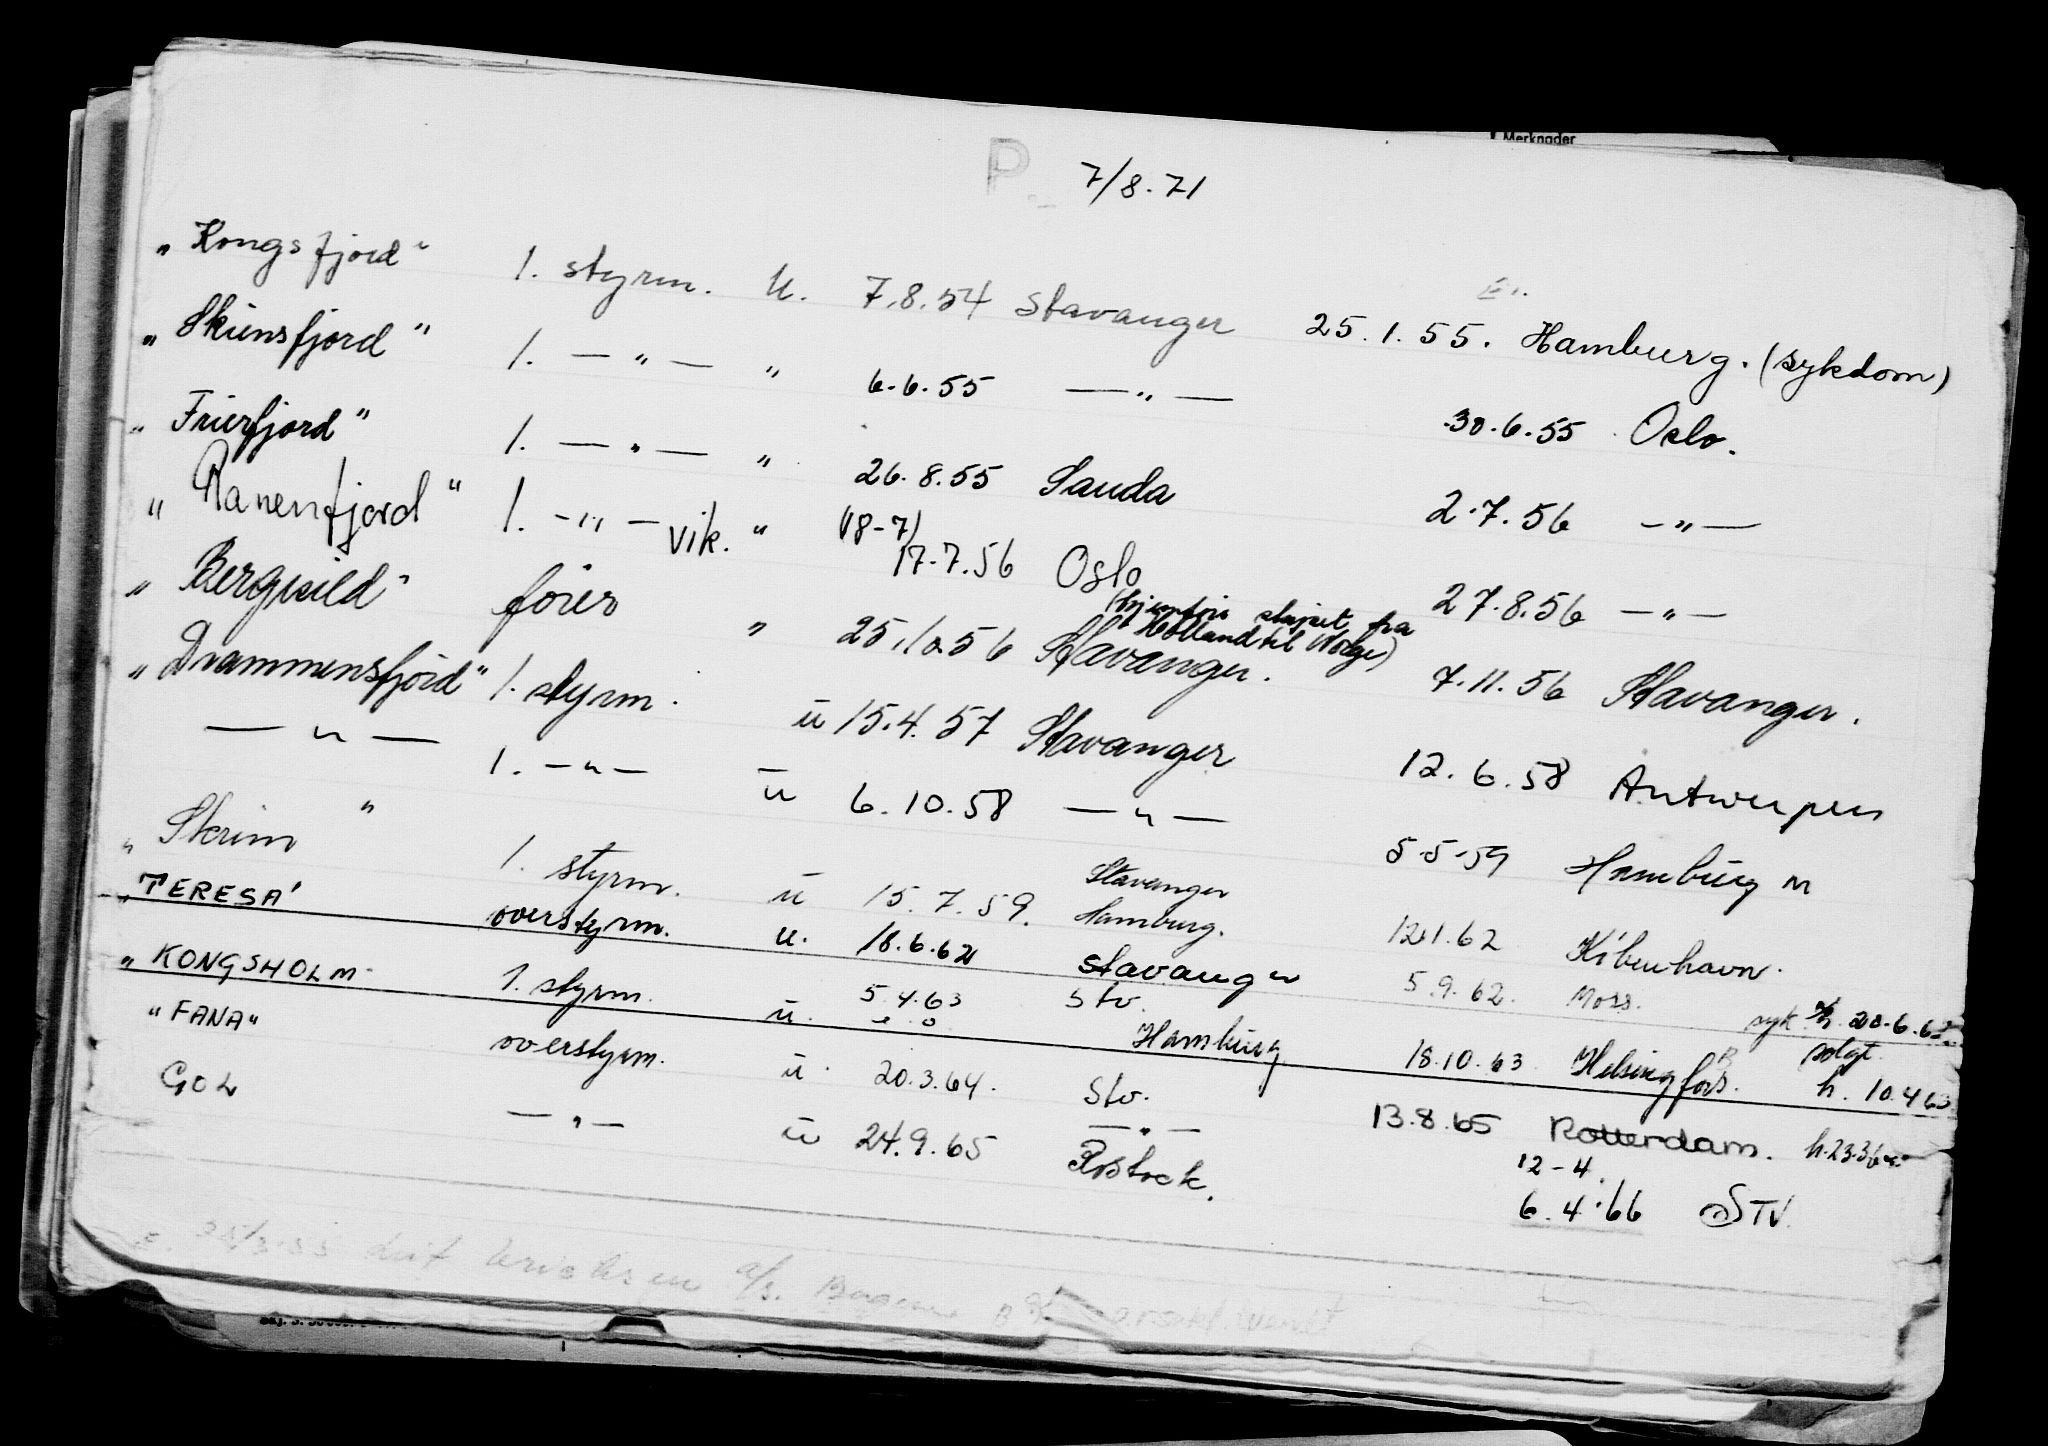 Merknader
P. 7/8.71
"Kongsfjord" 1. styrm. u. 7.8.54 Stavanger 25.1.55. Hamburg. (sykdom)
"Skiensfjord" 1. — " — " 6.6.55 — " — 30.6.55 Oslo.
"Frierfjord" 1. — " — " 26.8.55 Sauda 2.7.56 — " —
"Ranenfjord" 1. — " — vik. " (18-7) 17.7.56 Oslo 27.8.56 — " —
(hjemføre skipet fra Holland til Norge)
"Bergsild" fører " 25.10.56 Stavanger. 7.11.56 Stavanger.
"Drammensfjord" 1. styrm. u 15.4.57 Stavanger 12.6.58 Antwerpen
— " — 1. — " — u 6.10.58 — " — 5.5.59 Hamburg
"Skrim" 1. styrm. u 15.7.59. Stavanger Hamburg. 12.1.62 København.
"TERESA" overstyrm. u. 18.6.62 Stavanger 5.9.62. Moss. syk
"KONGSHOLM" 1. styrm. u. 5.4.63 Stv. Hamburg 18.10.63 Helsingfors. solgt. h. 10.4.63
"FANA" overstyrm. u. 20.3.64. Stv. 13.8.65 Rotterdam.
GOL — " — u 24.9.65 — " — Rostock. 12-4. 6.4.66 STV.